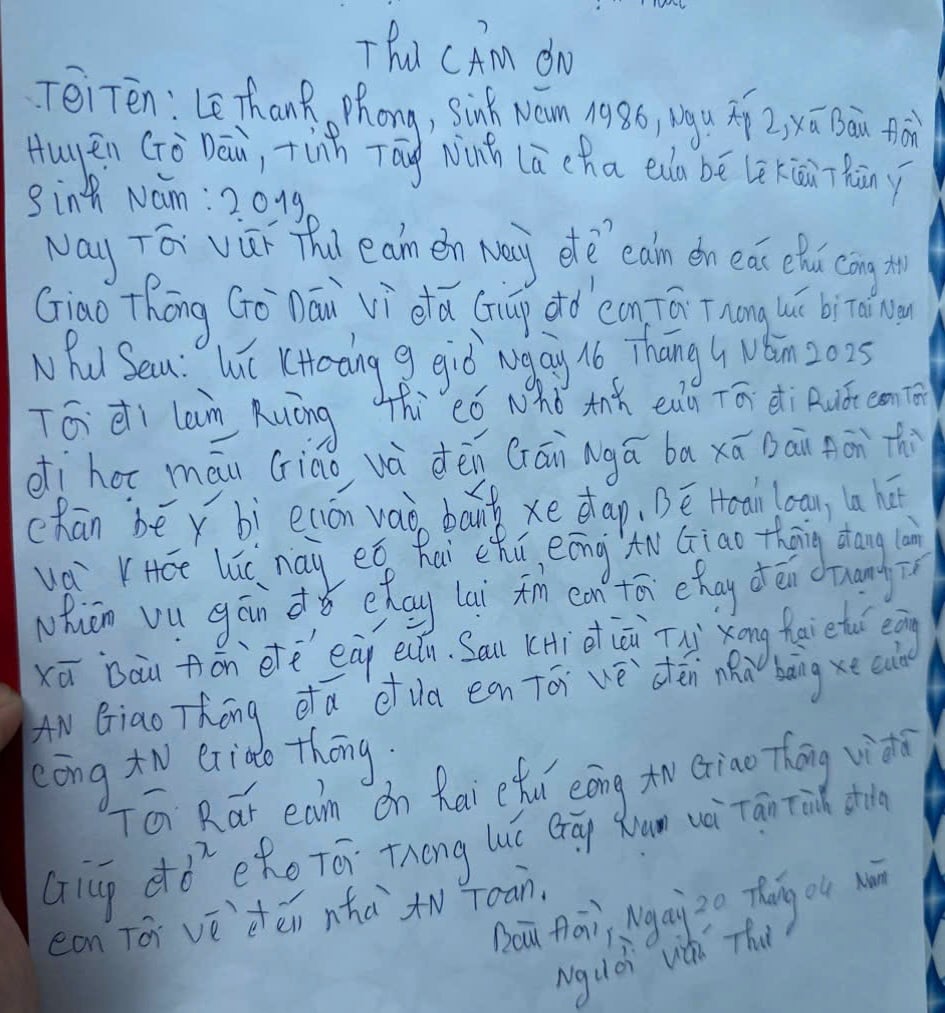 THƯ CẢM ƠN
Tôi Tên: Lê Thanh Phong, Sinh Năm 1986, Ngụ Ấp 2, xã Bàu Đồn
Huyện Gò Dầu, tỉnh Tây Ninh Là cha của bé Lê Kiều Thiên Ý
Sinh Năm: 2019
Nay Tôi viết Thư cảm ơn Này để cảm ơn các chú Công AN
Giao Thông Gò Dầu vì đã Giúp đở con Tôi Trong lúc bị Tai Nạn
Như Sau: lúc KHoảng 9 giờ Ngày 16 Tháng 4 Năm 2025
Tôi đi làm Ruộng Thì có Nhờ Anh của Tôi đi Rước con Tôi
đi học mẫu Giáo và đến Gần Ngã ba xã Bàu Đồn Thì
chân bé Ý bị cuốn vào bánh xe đạp. Bé Hoản loạn, la hét
và KHóc lúc này có hai chú công AN Giao Thông đang làm
Nhiệm vụ gần đó chạy lại ẩm con Tôi chạy đến Trạm Y Tế
xã Bàu Đồn để cấp cứu. Sau KHi điều Trị xong hai chú công
AN Giao Thông đã đưa con Tôi về đến nhà bằng xe của
công AN Giao Thông.
Tôi Rất cảm ơn hai chú công AN Giao Thông vì đã
Giúp đở cho Tôi Trong lúc Gặp Nạn và Tận Tình đưa
con Tôi về đến nhà AN Toàn.
Bàu Đồn, Ngày 20 Tháng 04 Năm
Người viết Thư